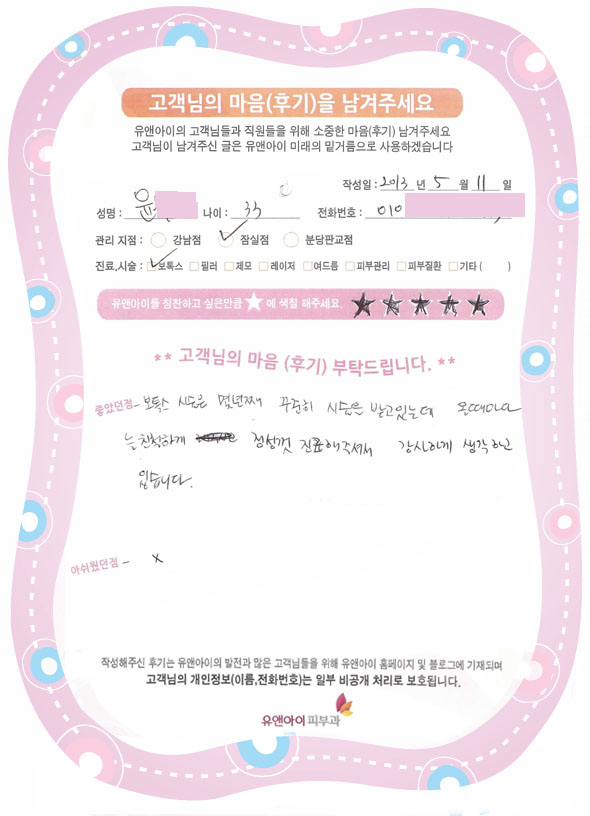 고객님의 마음(후기)을 남겨주세요
유앤아이의 고객님들과 직원들을 위해 소중한 마음(후기) 남겨주세요
고객님이 남겨주신 글은 유앤아이 미래의 밑거름으로 사용하겠습니다
작성일 : 2013 년 5 월 11 일
성명 : 윤 나이 : 33 전화번호 : 010
관리 지점 : 강남점 잠실점 분당판교점
진료,시술 : 보톡스 필러 제모 레이저 여드름 피부관리 피부질환 기타 ( )
유앤아이를 칭찬하고 싶은만큼 ★ 에 색칠 해주세요. ★ ★ ★ ★ ★
** 고객님의 마음 (후기) 부탁드립니다. **
좋았던점 - 보톡스 시술은 몇년째 꾸준히 시술을 받고있는데 올때마다
늘 친척하게 정성껏 진료해주셔서 감사하게 생각하고
있습니다.
아쉬웠던점 - x
작성해주신 후기는 유앤아이의 발전과 많은 고객님들을 위해 유앤아이 홈페이지 및 블로그에 기재되며
고객님의 개인정보(이름,전화번호)는 일부 비공개 처리로 보호됩니다.
유앤아이 피부과